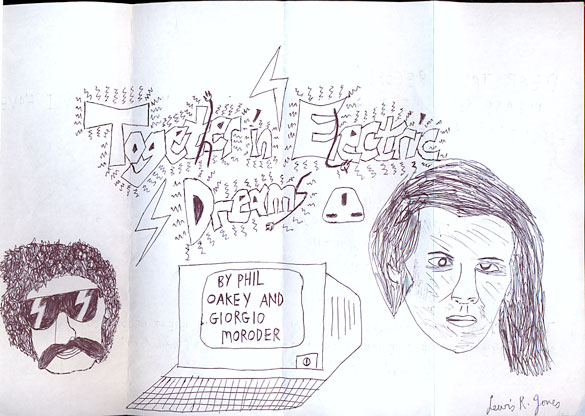 Together in Electric
Dreams
BY PHIL
OAKEY AND
GIORGIO
MORODER
Lewis R. Jones